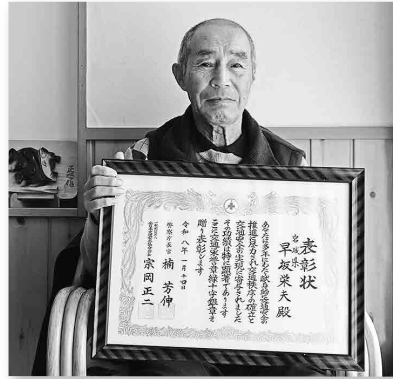 表彰状
宮城県
早坂栄夫殿
あなたは多年にわたり献身的に交通安全の
推進に尽くされ交通秩序の確立と
交通安全の実現に寄与されました
その功績は特に顕著であります
ここに交通栄誉章緑十字銀章を
贈り表彰します
令和八年一月十四日
警察庁長官 楠芳伸
宗岡正二